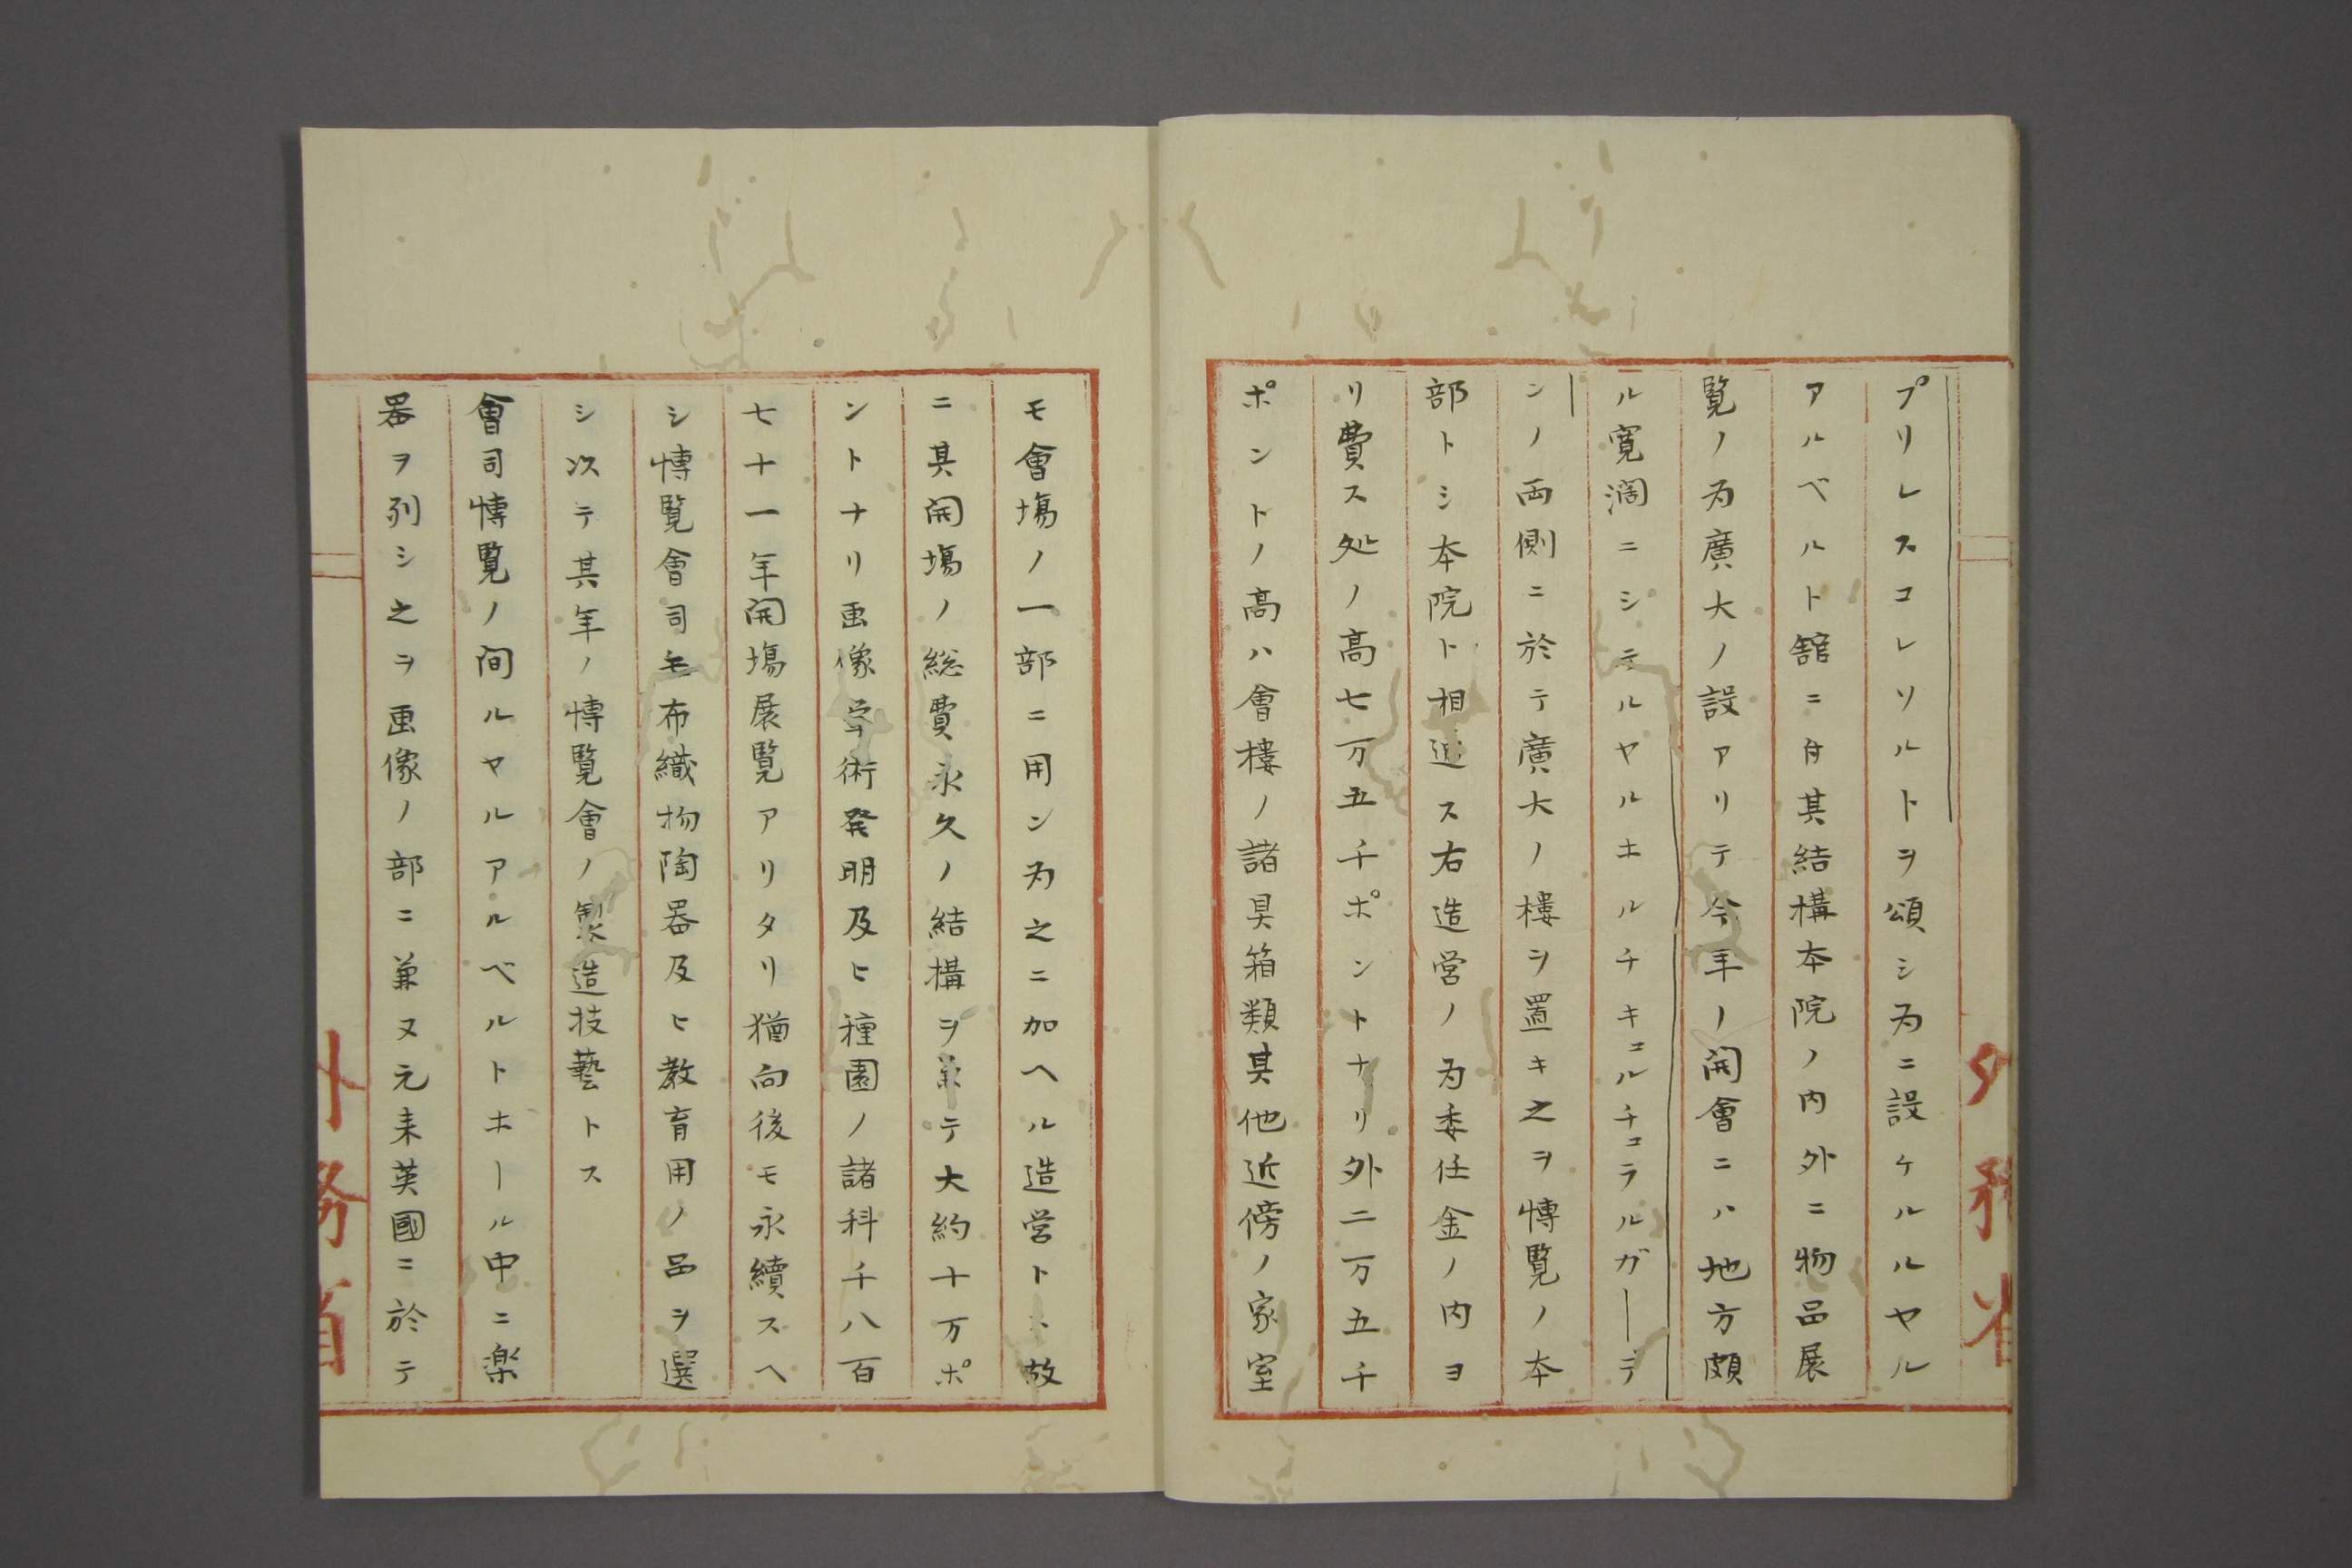 プリレスコレソルトヲ頌シ為ニ設ケルルヤル
アルベルト舘ニ母其結構本院ノ内外ニ物品展
覧ノ為廣大ノ設アリテ今年ノ開會ニハ地方頗
ル寛濶ニシテルヤルホルチキュルチュラルガーデ
ンノ両側ニ於テ廣大ノ樓ヲ置キ之ヲ博覧ノ本
部トシ本院ト相近ス右造営ノ為委任金ノ内ヨ
リ費ス処ノ高七万五千ポントナリ外二万五千
ポントノ高ハ會樓ノ諸具箱類其他近傍ノ家室
モ會場ノ一部ニ用ン為之ニ加ヘル造営トス故
ニ其開場ノ総費永久ノ結構ヲ兼テ大約十万ポ
ントナリ画像学術発明及ヒ種園ノ諸科千八百
七十一年開場展覧アリタリ猶向後モ永續スヘ
シ博覧會司モ布織物陶器及ヒ教育用ノ品ヲ選
シ次テ其年ノ博覧會ノ製造技藝トス
會司博覧ノ間ルヤルアルベルトホール中ニ楽
器ヲ列シ之ヲ画像ノ部ニ兼又元来英國ニ於テ
外務省
外務省